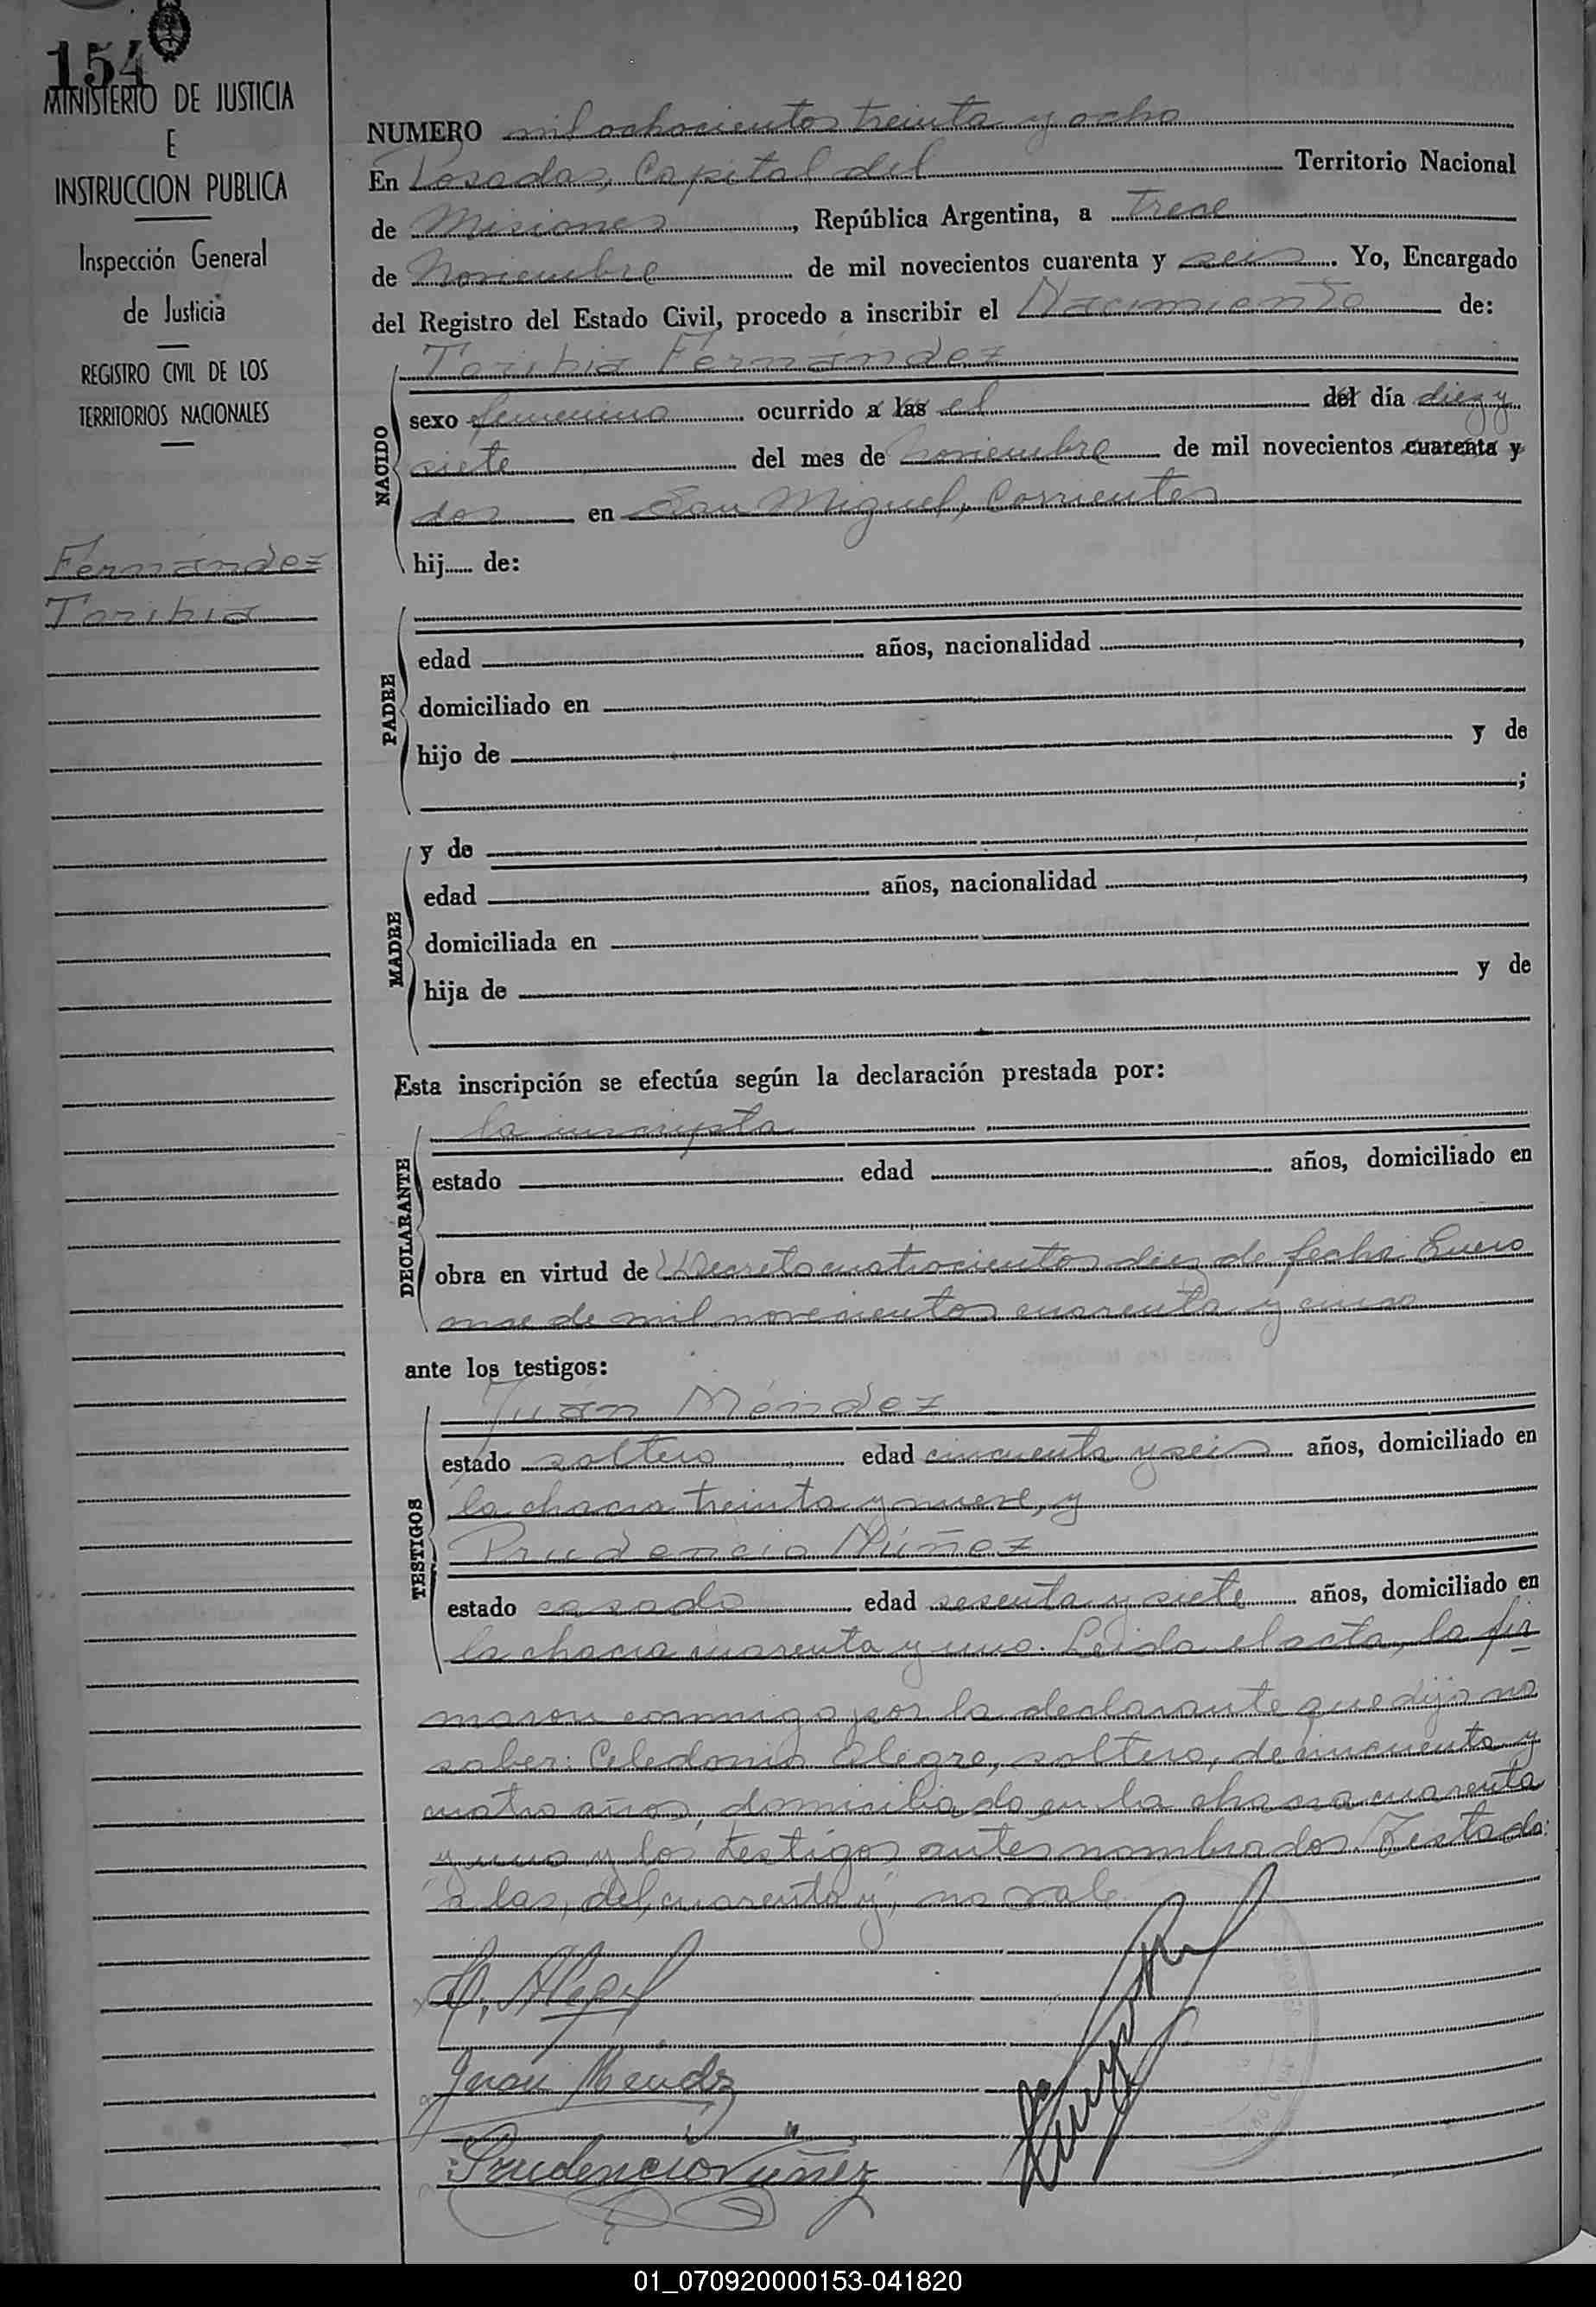 154
MINISTERIO DE JUSTICIA
E
INSTRUCCION PUBLICA
Inspección General
de Justicia
REGISTRO CIVIL DE LOS
TERRITORIOS NACIONALES
Fernández
Toribia
NUMERO mil ochocientos treinta y ocho
En Posadas, Capital del Territorio Nacional
de Misiones, República Argentina, a trece
de Noviembre de mil novecientos cuarenta y seis. Yo, Encargado
del Registro del Estado Civil, procedo a inscribir el Nacimiento de:
NACIDO
Toribia Fernández
sexo femenino ocurrido a las el del día diez y
siete del mes de noviembre de mil novecientos cuarenta y
dos en San Miguel, Corrientes
hij...... de:
PADRE
edad años, nacionalidad ,
domiciliado en
hijo de y de
;
MADRE
y de
edad años, nacionalidad ,
domiciliada en
hija de y de
Esta inscripción se efectúa según la declaración prestada por:
DECLARANTE
la inscripta
estado edad años, domiciliado en
obra en virtud de Decreto cuatrocientos diez de fecha Enero
once de mil novecientos cuarenta y cinco
ante los testigos:
TESTIGOS
Juan Méndez
estado soltero edad cincuenta y seis años, domiciliado en
la chacra treinta y nueve, y
Prudencio Núñez
estado casado edad sesenta y siete años, domiciliado en
la chacra cuarenta y uno. Leida el acta, la fir
maron conmigo por la declarante que dijo no
saber: Celedonio Alegre, soltero, de cincuenta y
cuatro años, domiciliado en la chacra cuarenta
y uno y los testigos antes nombrados. Testado:
"a las, del, cuarenta y", no vale.
Juan Méndez
Prudencio Núñez
01_070920000153-041820